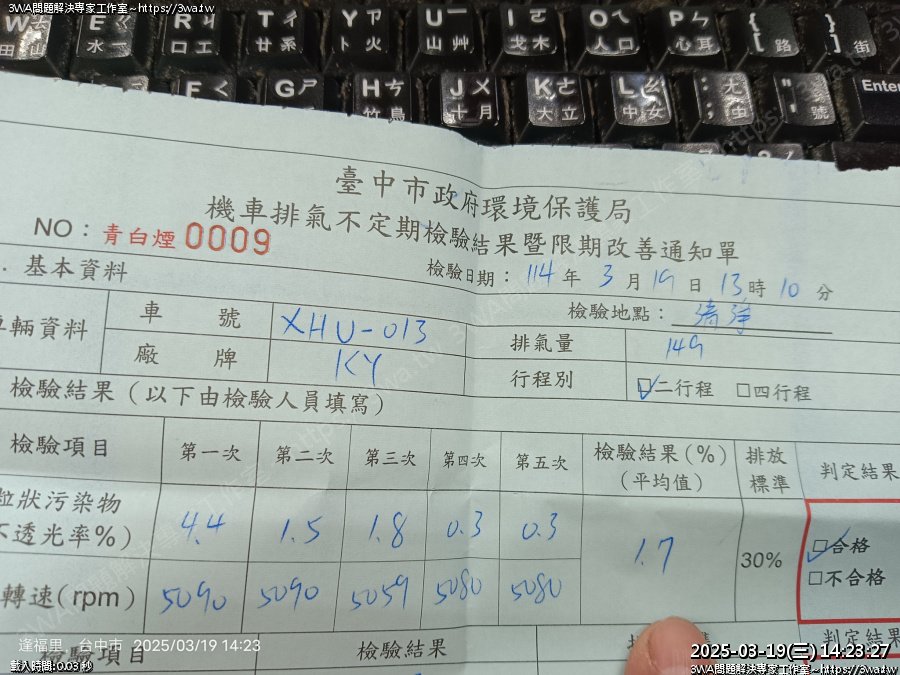 3WA問題解決專家工作室~https://3wa.tw
W ㄊ 田 E ㄍ 水 R ㄐ 口 T ㄔ 廿 Y ㄗ 卜 U ㄧ 山 I ㄛ 戈 O ㄟ 人 P ㄣ 心 { [ } ]
F ㄑ G ㄕ H ㄘ 竹 J ㄨ 十 K ㄜ 大 L ㄠ 中 : ; ㄤ " ' Enter
臺中市政府環境保護局
機車排氣不定期檢驗結果暨限期改善通知單
NO：青白煙 0009
檢驗日期：114 年 3 月 19 日 13 時 10 分
. 基本資料
檢驗地點：清淨
車輛資料 車號 XHU-013 排氣量 149
廠牌 KY 行程別 ☑二行程 □四行程
檢驗結果（以下由檢驗人員填寫）
檢驗項目 第一次 第二次 第三次 第四次 第五次 檢驗結果(%)（平均值） 排放標準 判定結果
粒狀污染物
不透光率%） 4.4 1.5 1.8 0.3 0.3 1.7 30% ☑合格
□不合格
轉速(rpm) 5090 5090 5059 5080 5080
檢驗項目 檢驗結果 判定結果
逢福里，台中市 2025/03/19 14:23
載入時間: 0.03 秒
2025-03-19(三) 14:23:27
3WA問題解決專家工作室~https://3wa.tw